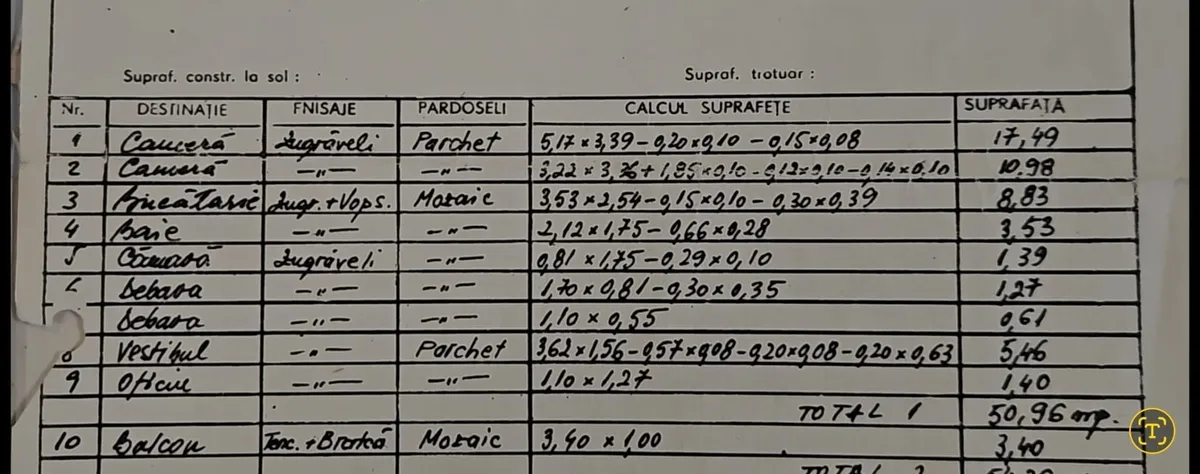 Supraf. constr. la sol : Supraf. trotuar :
Nr. DESTINAȚIE FNISAJE PARDOSELI CALCUL SUPRAFEȚE SUPRAFAȚA
1 Cameră Zugrăveli Parchet 5,17 x 3,39 - 0,20 x 0,10 - 0,15 x 0,08 17,49
2 Cameră -"- -"- 3,22 x 3,36 + 1,85 x 0,10 - 0,12 x 0,10 - 0,14 x 0.10 10.98
3 Bucătarie Zugr. + Vops. Mozaic 3,53 x 2,54 - 0,15 x 0,10 - 0,30 x 0,39 8,83
4 Baie -"- -"- 2,12 x 1,75 - 0,66 x 0,28 3,53
5 Cămară Zugrăveli -"- 0,81 x 1,75 - 0,29 x 0,10 1,39
Debara -"- -"- 1,70 x 0,81 - 0,30 x 0,35 1,27
Debara -"- -"- 1,10 x 0,55 0,61
8 Vestibul -"- Parchet 3,62 x 1,56 - 0,57 x 0,08 - 0,20 x 0,08 - 0,20 x 0,63 5,46
9 Oficiu -"- -"- 1,10 x 1,27 1,40
TOTAL 1 50,96 mp.
10 Balcon Mozaic 3,40 x 1,00 3,40
TOTAL 2
T